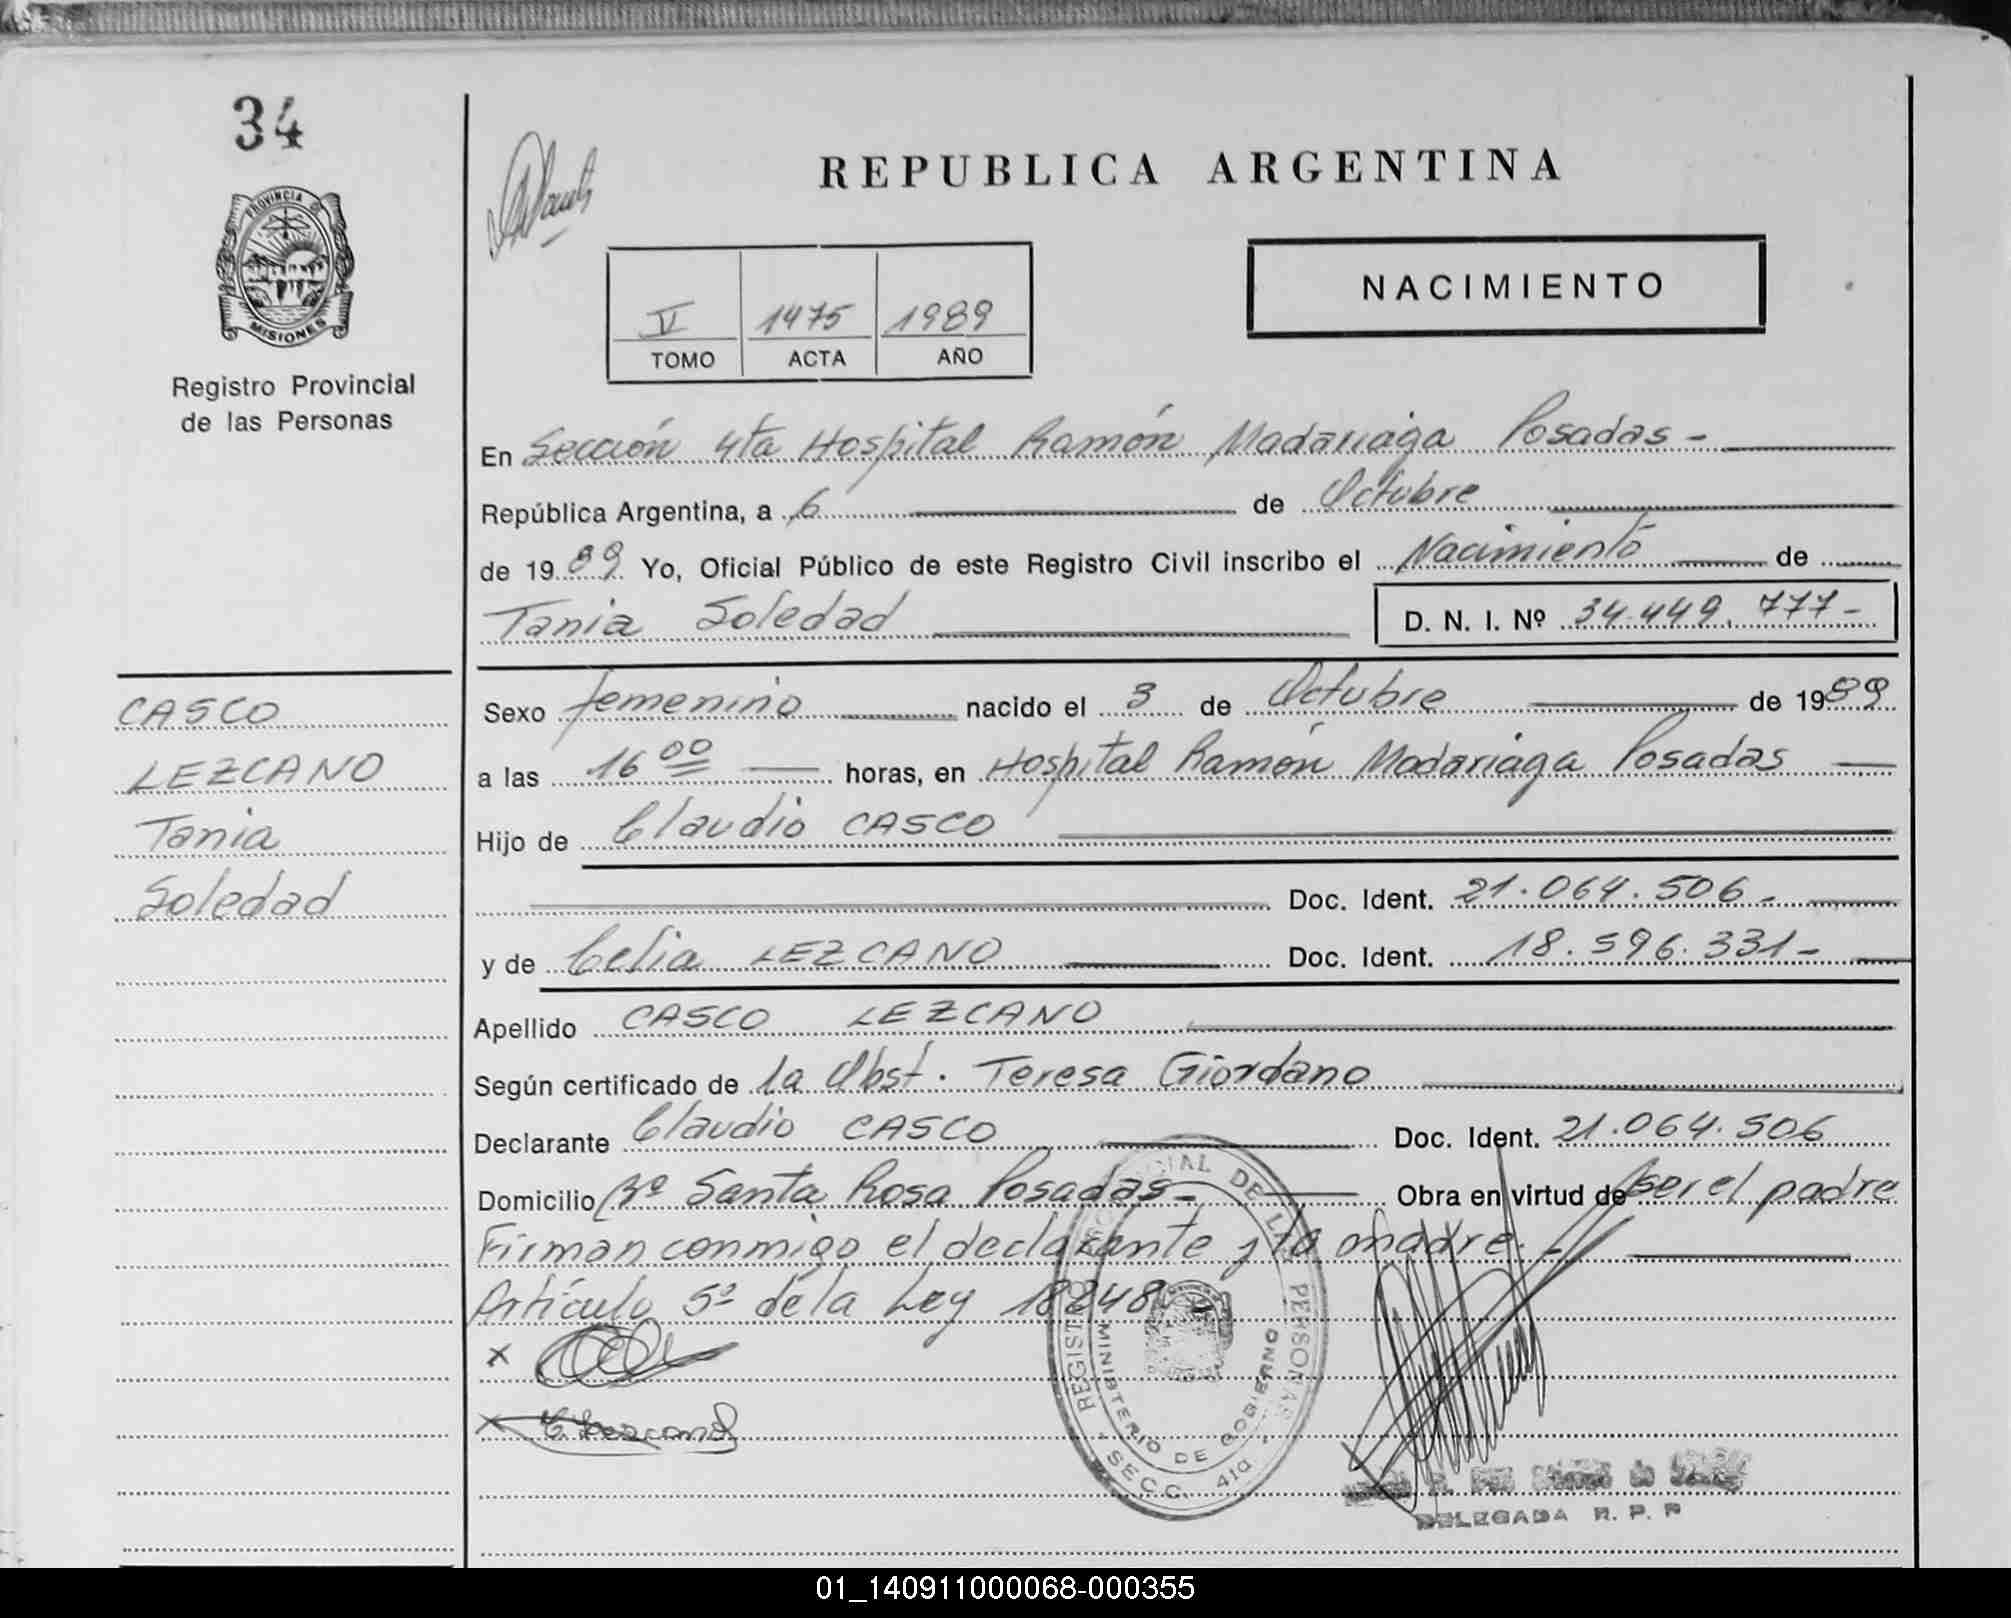 34
PROVINCIA D
MISIONES
Registro Provincial
de las Personas
CASCO
LEZCANO
Tania
Soledad
REPUBLICA ARGENTINA
V 1475 1989
TOMO ACTA AÑO
NACIMIENTO
En Sección 4ta Hospital Ramón Madariaga Posadas -
República Argentina, a 6 de Octubre
de 1989 Yo, Oficial Público de este Registro Civil inscribo el Nacimiento de
Tania Soledad
D. N. I. Nº 34.449.777-
Sexo femenino nacido el 3 de Octubre de 1989
a las 16 00 horas, en Hospital Ramón Madariaga Posadas
Hijo de Claudio CASCO
Doc. Ident. 21.064.506-
y de Celia LEZCANO Doc. Ident. 18.596.331-
Apellido CASCO LEZCANO
Según certificado de la Obst. Teresa Giordano
Declarante Claudio CASCO Doc. Ident. 21.064.506
Domicilio Bº Santa Rosa Posadas- Obra en virtud de ser el padre
Firman conmigo el declarante y la madre.-
Artículo 5º de la Ley 18248
x
x C Lezcano
REGISTRO DE LAS PERSONAS
MINISTERIO DE GOBIERNO
SECC. 4ta
DELEGADA R. P. P
01_140911000068-000355